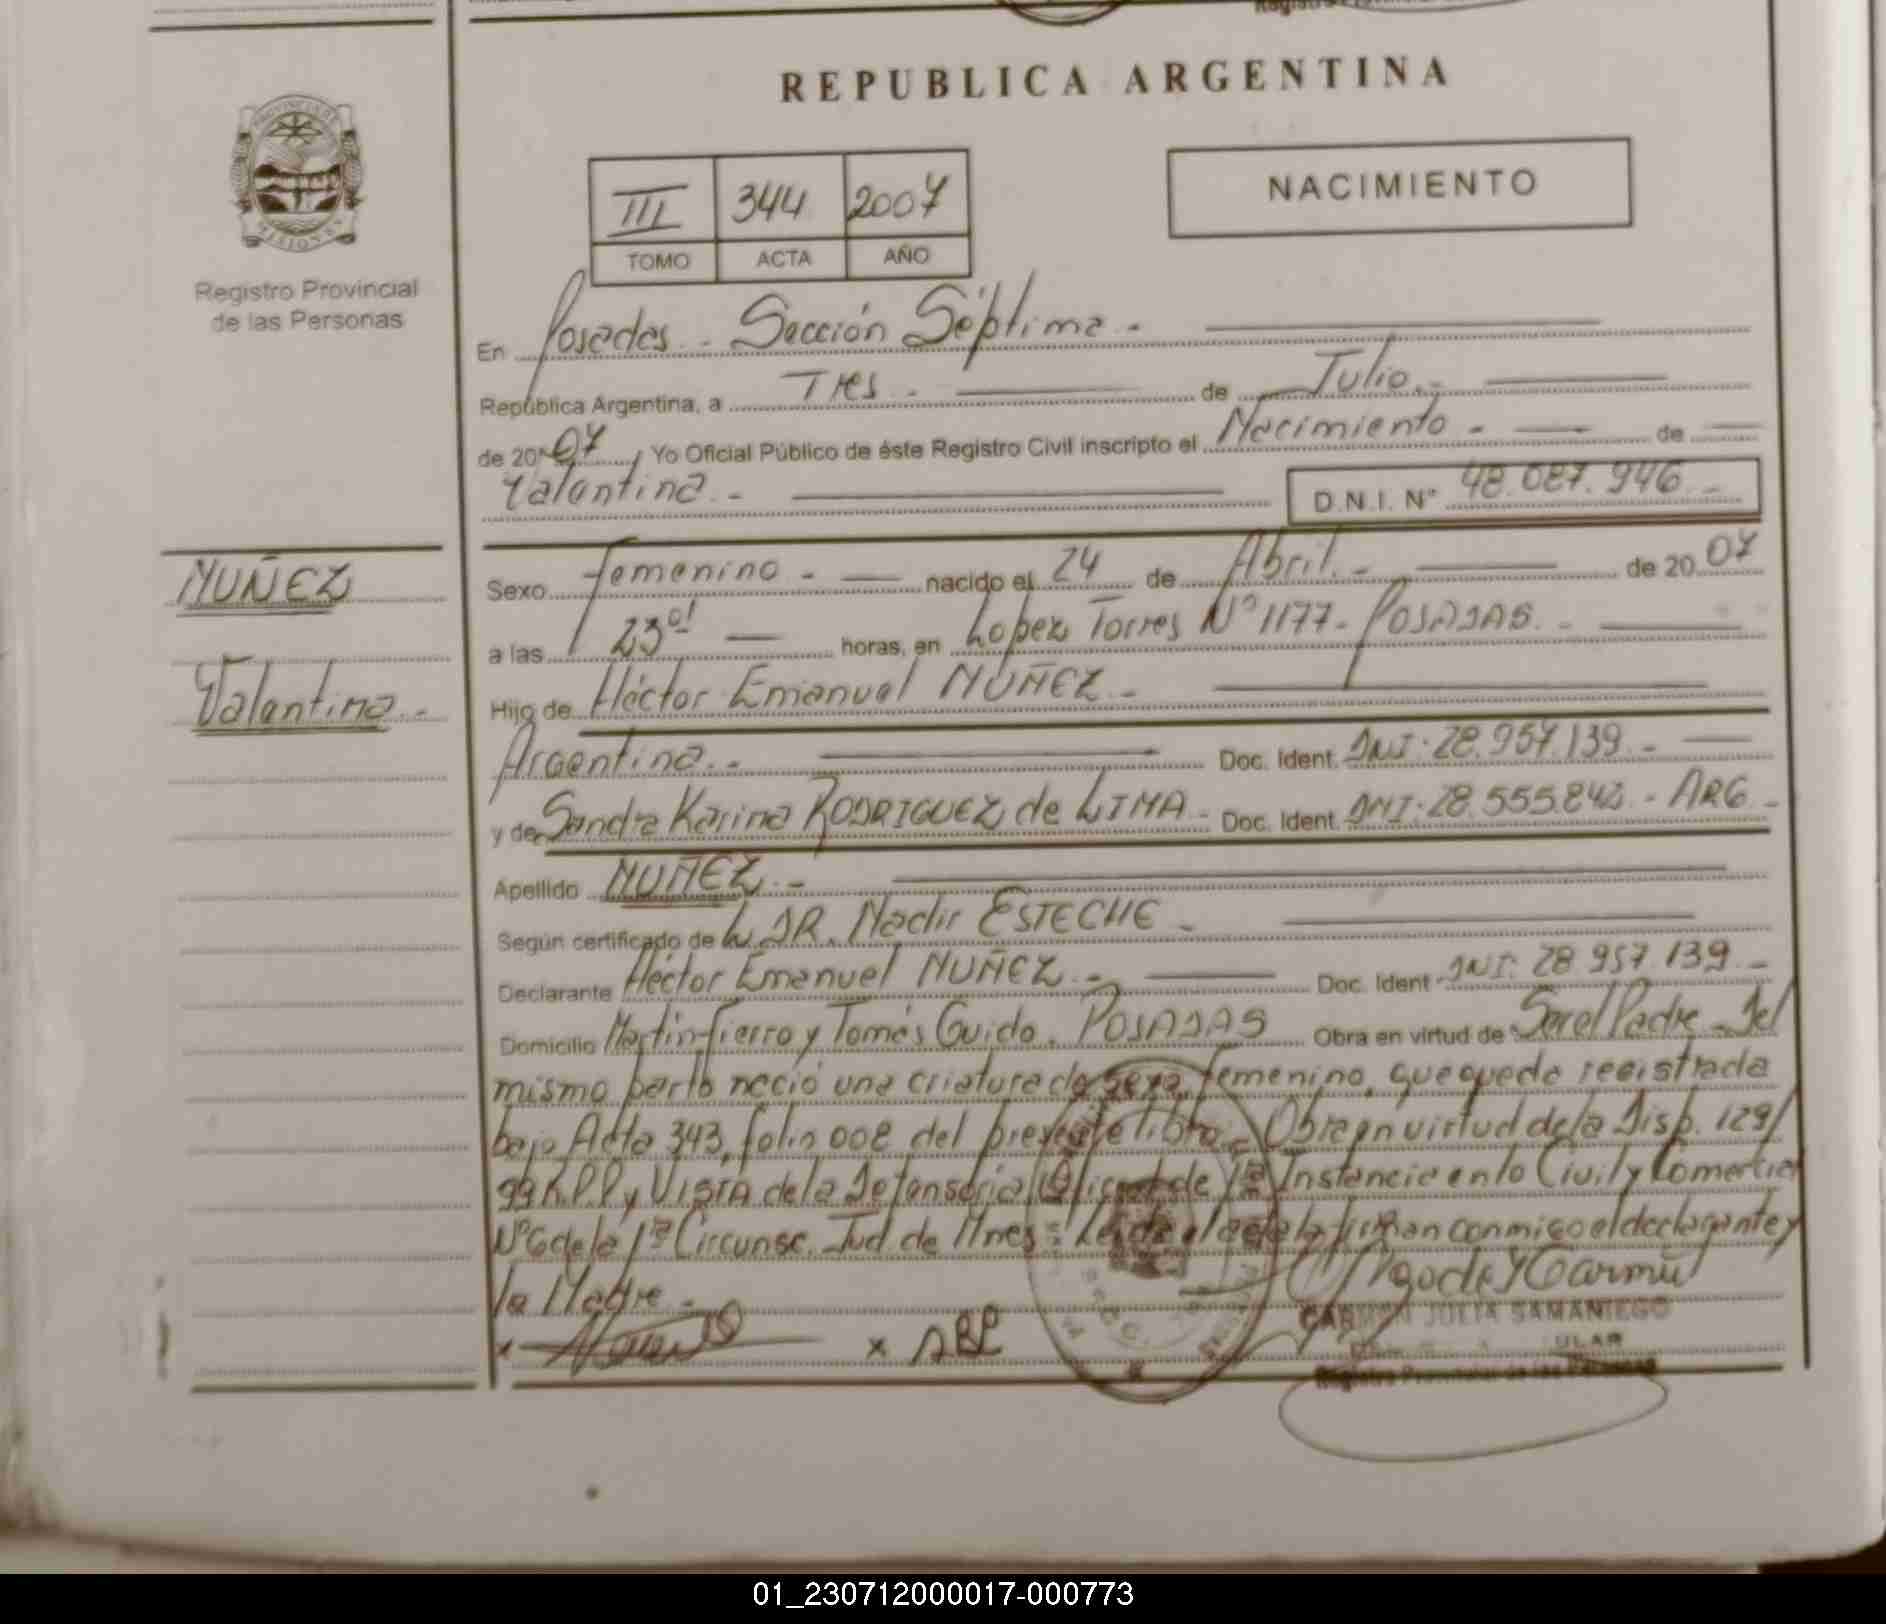 REPUBLICA ARGENTINA
PROVINCIA DE
MISIONES
Registro Provincial
de las Personas
III 344 2007
TOMO ACTA AÑO
NACIMIENTO
En Posadas - Sección Séptima -
República Argentina, a Tres - de Julio -
de 2007, Yo Oficial Público de éste Registro Civil inscripto el Nacimiento - de
Valentina - D.N.I. N° 48.087.946 -
NUÑEZ
Valentina -
Sexo femenino - nacido el 24 de Abril - de 2007
a las 23 hs horas, en Lopez Torres N° 1177 - POSADAS -
Hijo de Héctor Emanuel NUÑEZ -
Argentina - Doc. Ident. DNI: 28.957.139 -
y de Sandra Karina RODRIGUEZ de LIMA - Doc. Ident. DNI: 28.555.842 - ARG -
Apellido NUÑEZ -
Según certificado de DR. Nadir ESTECHE -
Declarante Héctor Emanuel NUÑEZ - Doc. Ident DNI: 28.957.139 -
Domicilio Martín Fierro y Tomás Guido. POSADAS Obra en virtud de Ser el Padre - Del
mismo parto nació una criatura de sexo femenino, que queda registrada
bajo Acta 343, folio 008 del presente libro - Obra en virtud de la Disp. 129/
99 R.P.P y VISTA de la Defensoría Oficial de 1ra Instancia en lo Civil y Comercial
N° 6 de la 1ra Circunsc. Jud. de Mnes = Leída el acta la firman conmigo el declarante y
la Madre -
CARMEN JULIA SAMANIEGO
Registro Provincial de las Personas
01_230712000017-000773